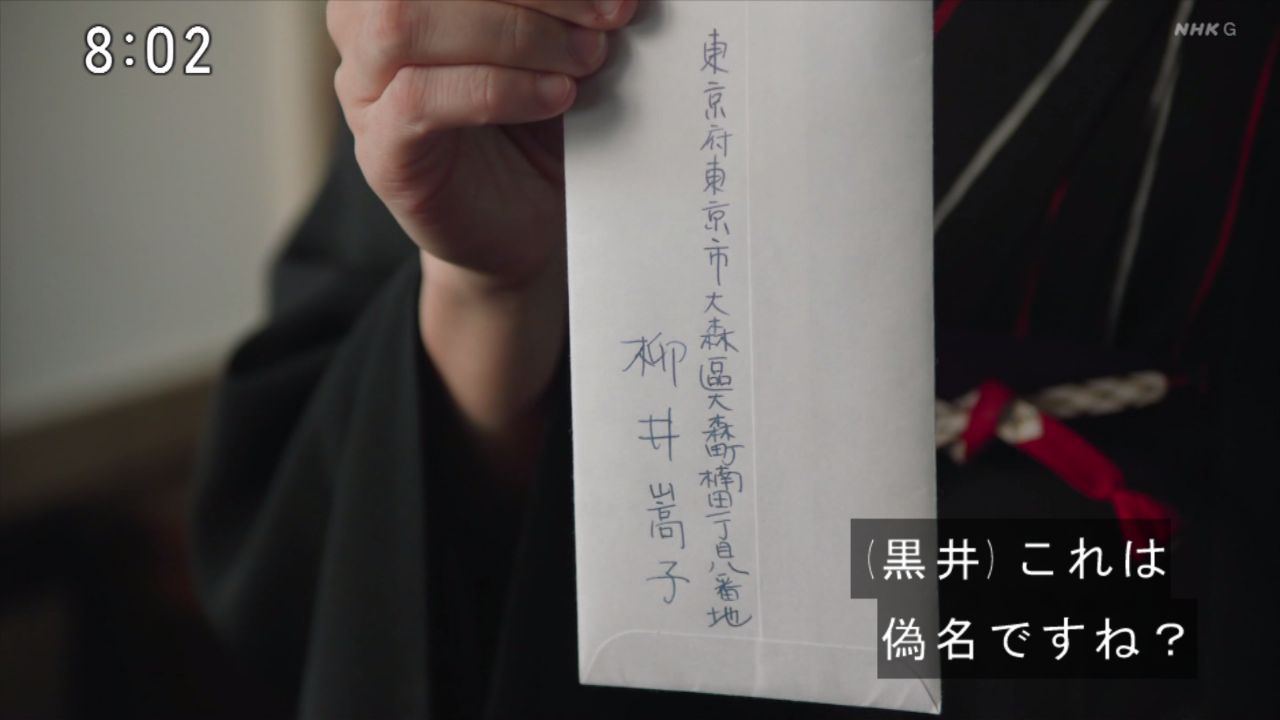 8:02
NHK G
東京府東京市大森區大森町楠田一丁目八番地
柳井嵩子
(黒井)これは
偽名ですね?